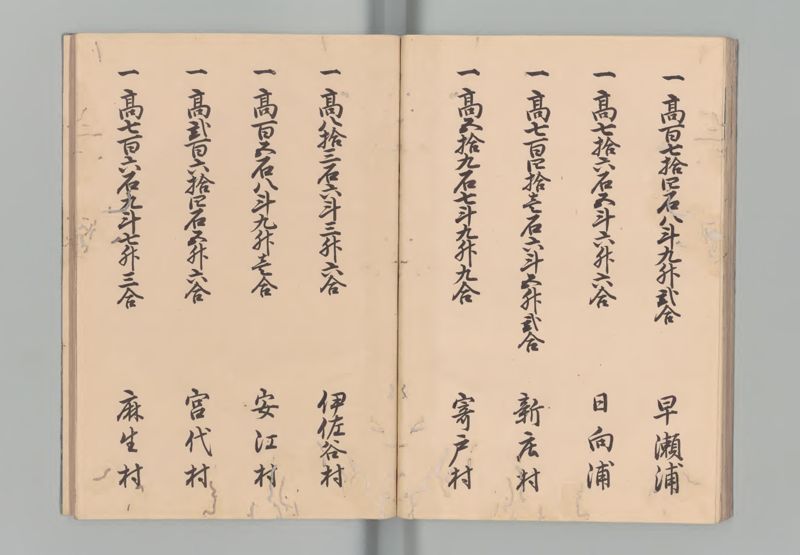 一高百七拾四石八斗九升弐合 早瀬浦
一高七拾六石五斗六升六合 日向浦
一高七百四拾壱石六斗五升弐合 新庄村
一高五拾九石七斗九升九合 寄戸村
一高八拾三石六斗三升六合 伊佐谷村
一高百五石八斗九升壱合 安江村
一高弐百六拾四石五升六合 宮代村
一高七百六石九斗七升三合 麻生村